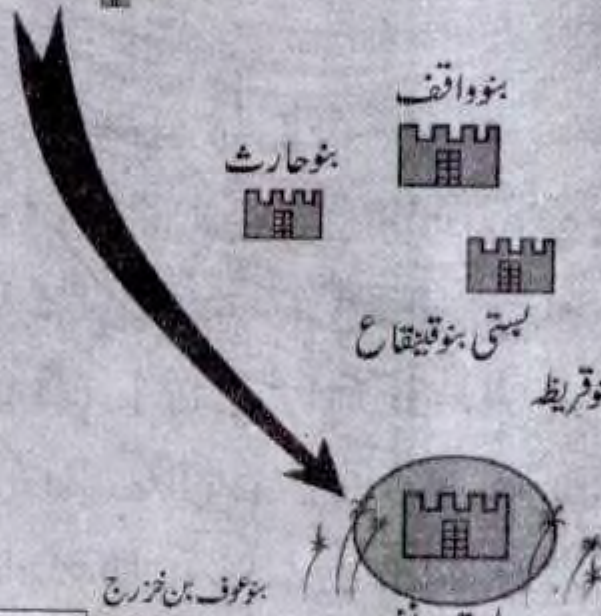 بنو واقف
بنو حارث
بستی بنو قینقاع
قریظہ
بنو عوف بن خزرج